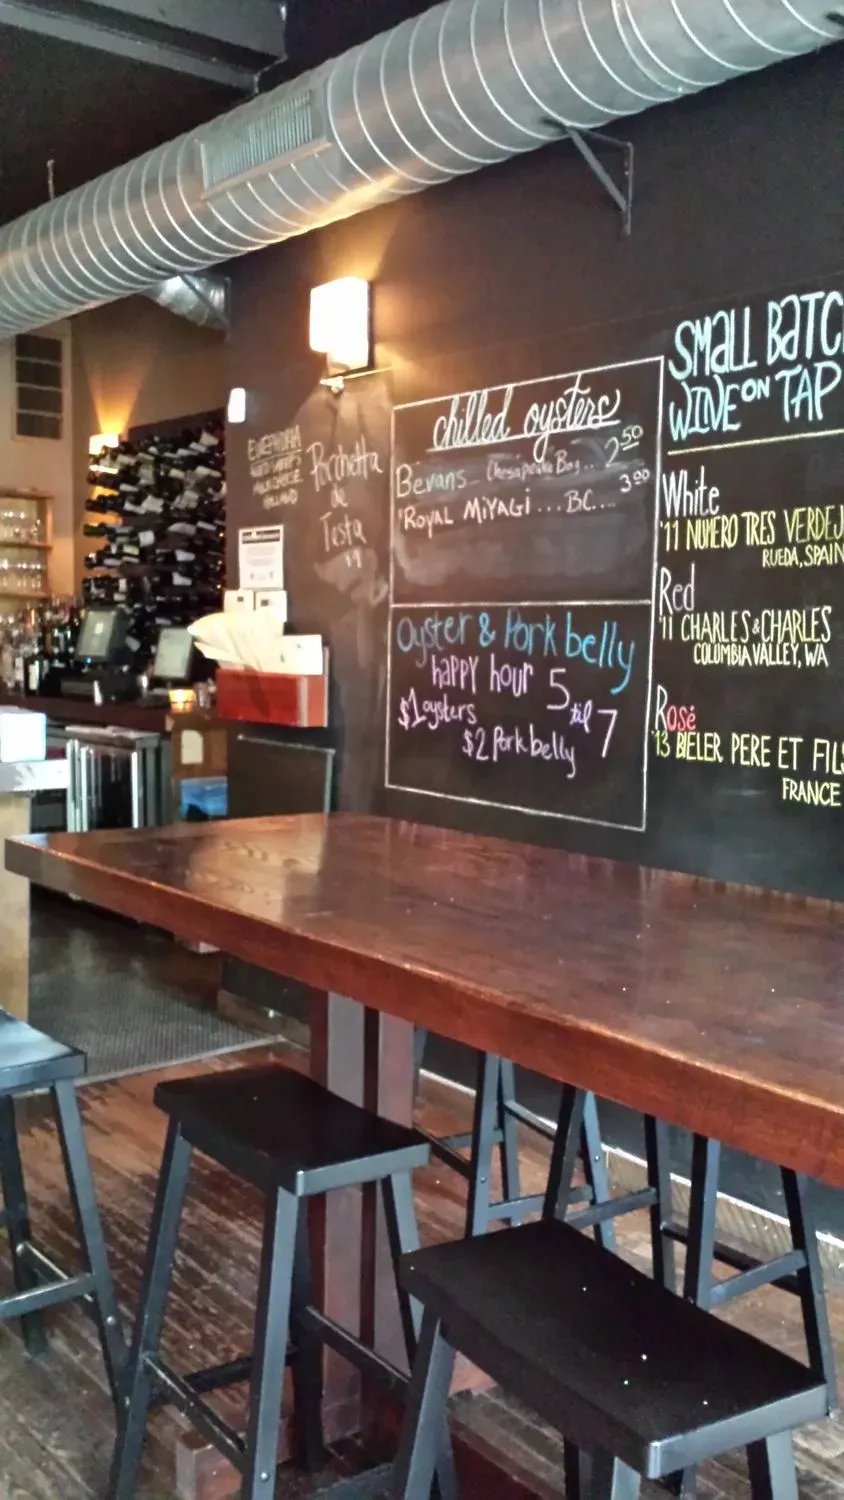 chilled oysters
Bevans Chesapeake Bay.. 2.50
Royal Miyagi ... BC.... 3.00
Oyster & Pork belly
happy hour 5 til 7
$1 oysters
$2 Pork belly
Porchetta
de
Testa
SMALL BATC
WINE ON TAP
White
'11 NUMERO TRES VERDEJ
RUEDA, SPAIN
Red
'11 CHARLES & CHARLES
COLUMBIA VALLEY, WA
Rosé
'13 BIELER PERE ET FILS
FRANCE